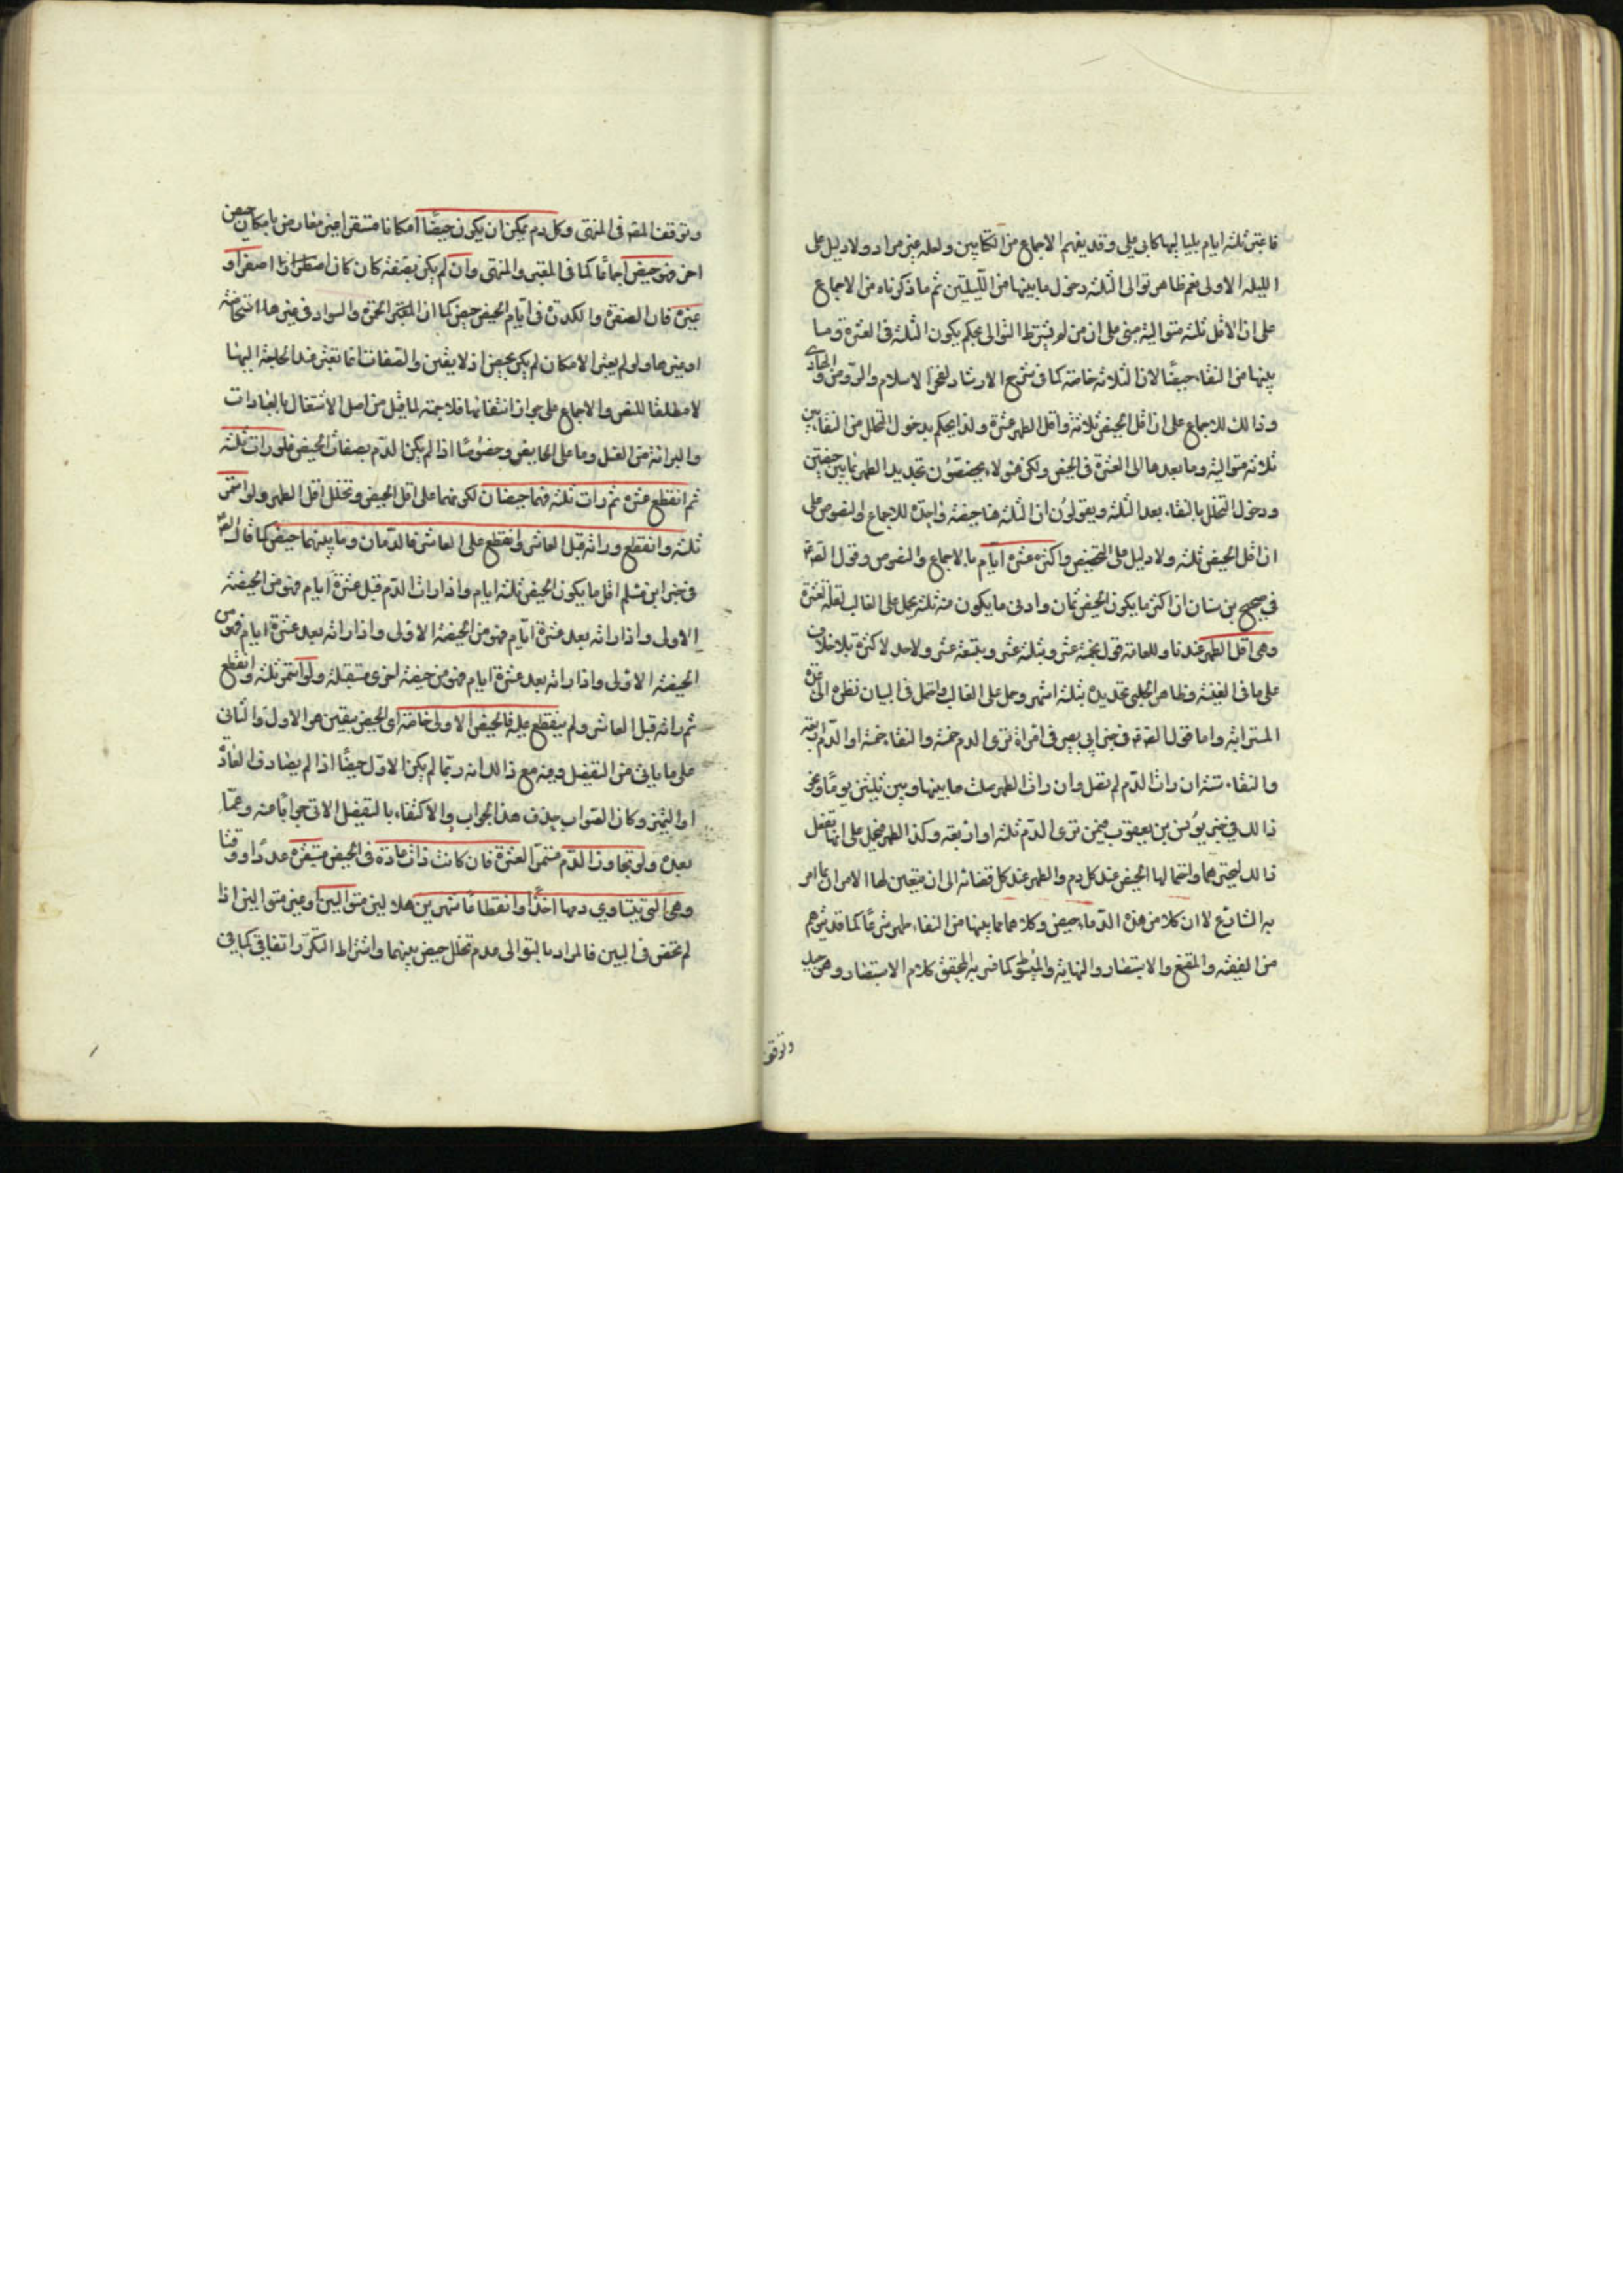 فاعتبر ثلثه ايام بلياليها كابي علي وقد يفهم الاجماع من الكتابين ولعله غير مراد ولا دليل على
الليله الاولى نعم ظاهر توالى الثلثه دخول ما بينها من الليلتين ثم ما ذكرناه من الاجماع
على ان الاقل ثلثه متواليه مبنى على ان من لم يشترط التوالى يحكم بكون الثلثه فى العشرة وما
بينها من النقاء حيضًا لا ان الثلاثه خاصّة كما فى شرح الارشاد لفخر الاسلام والروض والحاوى
وذالك للاجماع على ان اقل الحيض ثلاثة واقل الطهر عشرة ولذا يحكم بدخول المتخلل من النقاء بين
ثلاثه متواليه وما بعدها الى العشرة فى الحيض ولكن هؤلاء يخصّصون تحديد الطهر بما بين حيضتين
ودخول المتخلل بالنقاء بعد الثلثه ويقولون ان الثلثه هنا حيضه واحدة للاجماع والنصوص على
ان اقل الحيض ثلثه ولا دليل على التخصيص واكثره عشره ايّام بالاجماع والنصوص وقول الصّ ع
في صحيح بن سنان ان اكثر ما يكون الحيض ثمان وادنى ما يكون منه ثلثه يحمل على الغالب لعله لعشرة
وهى اقل الطهر عندنا وللعامة قول بخمسه عشر وبثلثه عشر وبتسعه عشر ولا حد لاكثره بلا خلاف
على ما فى الغنيه وظاهر الحلبى تحديده بثلثه اشهر وحمل على الغالب واحتمل فى البيان نظره الى عدة
المسترابه واما قول الصّ ع فى خبر ابى بصير فى امراة ترى الدم خمسه والنقاء خمسه او الدم اربعة
والنقاء ستة ان رات الدّم لم تصل وان رات الطهر صلت ما بينها وبين ثلثين يومًا ونحو
ذالك في خبر يونس بن يعقوب فيمن ترى الدّم ثلثه او اربعه وكذا الطهر فيحمل على انها تفعل
ذالك لتحيّرها واحتمالها الحيض عند كل دم والطهر عند كل نقاء الى ان يتعين لها الامران بما امر
به الشارع لا ان كلا من هذه الدّماء حيض وكلا مما بينها من النقاء طهر شرعًا كما قد يتوهم
من الفقيه والمقنع والاستبصار والنهايه والمبسوط كما فسر به المحقق كلام الاستبصار وهو جيد
وتوقف
وتوقف المصّ فى المنتهى وكل دم يمكن ان يكون حيضًا امكانا مستقرا غير معارض بامكان حيض
اخر فهو حيض اجماعًا كما فى المعتبر والمنتهى وان لم يكن بصفته كان كان اصفر او
غيره فان الصفرة والكدرة فى ايّام الحيض حيض كما ان الحمرة والسواد فى غيرها استحاضة
او غيرها ولو لم يعتبر الامكان لم يكن بحيض اذ لا يقين والصفات انما تعتبر عند الحاجة اليها
لا مطلقا للنص والاجماع على جواز انتفائها فلا جهة لما قيل من اصل الاشتغال بالعبادات
والبرائه من الغسل وما على الحايض وخصوصًا اذا لم يكن الدّم بصفات الحيض فلو رات ثلثه
ثم انقطع عشره ثم رات ثلثه فهما حيضان لكونهما على اقل الحيض وتخلل اقل الطهر ولو استمر
ثلثه وانقطع وراته قبل العاشر وانقطع على العاشر فالدّمان وما بينهما حيض كما قال الصّ
فى خبر ابن مسلم اقل ما يكون الحيض ثلثه ايام واذا رات الدّم قبل عشرة ايام فهو من الحيضه
الاولى واذا راته بعد عشرة ايّام فهو من الحيضه الاولى واذا راته بعد عشرة ايام فهو من
الحيضه الاولى واذا راته بعد عشرة ايام فهو من حيضه اخرى مستقبله ولو استمر ثلثه وانقطع
ثم راته قبل العاشر ولم ينقطع عليه فالحيض الاولى خاصّة اى الحيض بيقين هو الاول والثانى
على ما ياتى من التفصيل وفيه مع ذالك انه ربّما لم يكن الاوّل حيضًا اذا لم يصادف العادة
او التميز وكان الصّواب حذف هذا الجواب والاكتفاء بالتفصيل الاتى جوابًا منه وعمّا
بعده ولو تجاوز الدّم مستمرّا العشرة فان كانت ذات عادة فى الحيض مستقرة عددًا ووقتا
وهى التى يتساوى دمها اخذًا وانقطاعًا شهرين هلاليين متواليين او غير متواليين اذا
لم تحض فى البين فالمراد بالتوالى عدم تخلل حيض بينهما واشتراط التكرّر اتفاقى كما فى